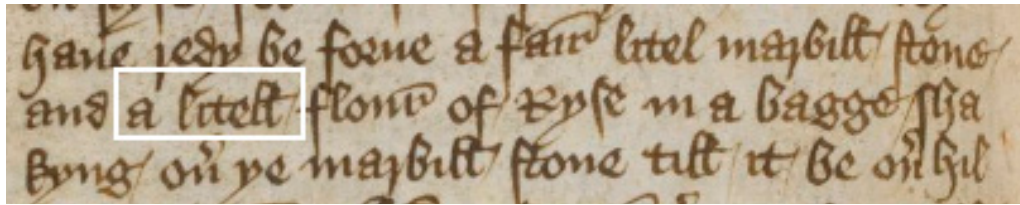 haue redy be forne a fair litel marbill stone
and a litell flour of Ryse in a bagge sha
kyng ou̕ ye marbill stone till it be ou̕ hil